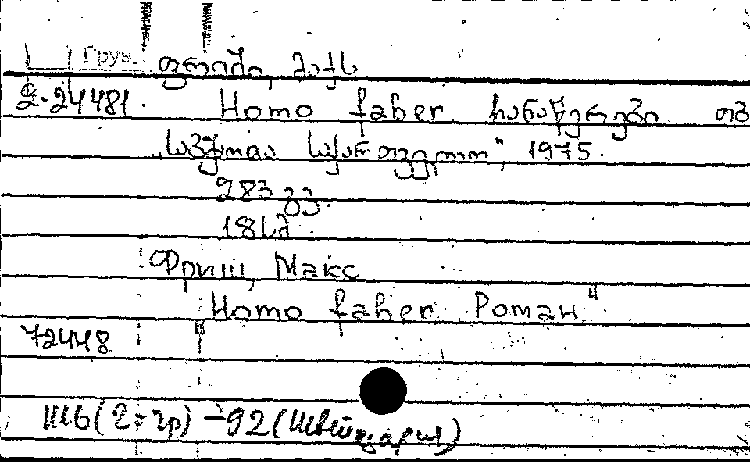 Груз.
ფრიში, მაქს
2-24481. Homo faber ჩანაწერები თბ
„საბჭოთა საქართველო“, 1975.
283 გვ.
18 სმ
Фриш, Макс
"Homo faber Роман"
72448
Ш6(2=гр)-92(Швейцария)